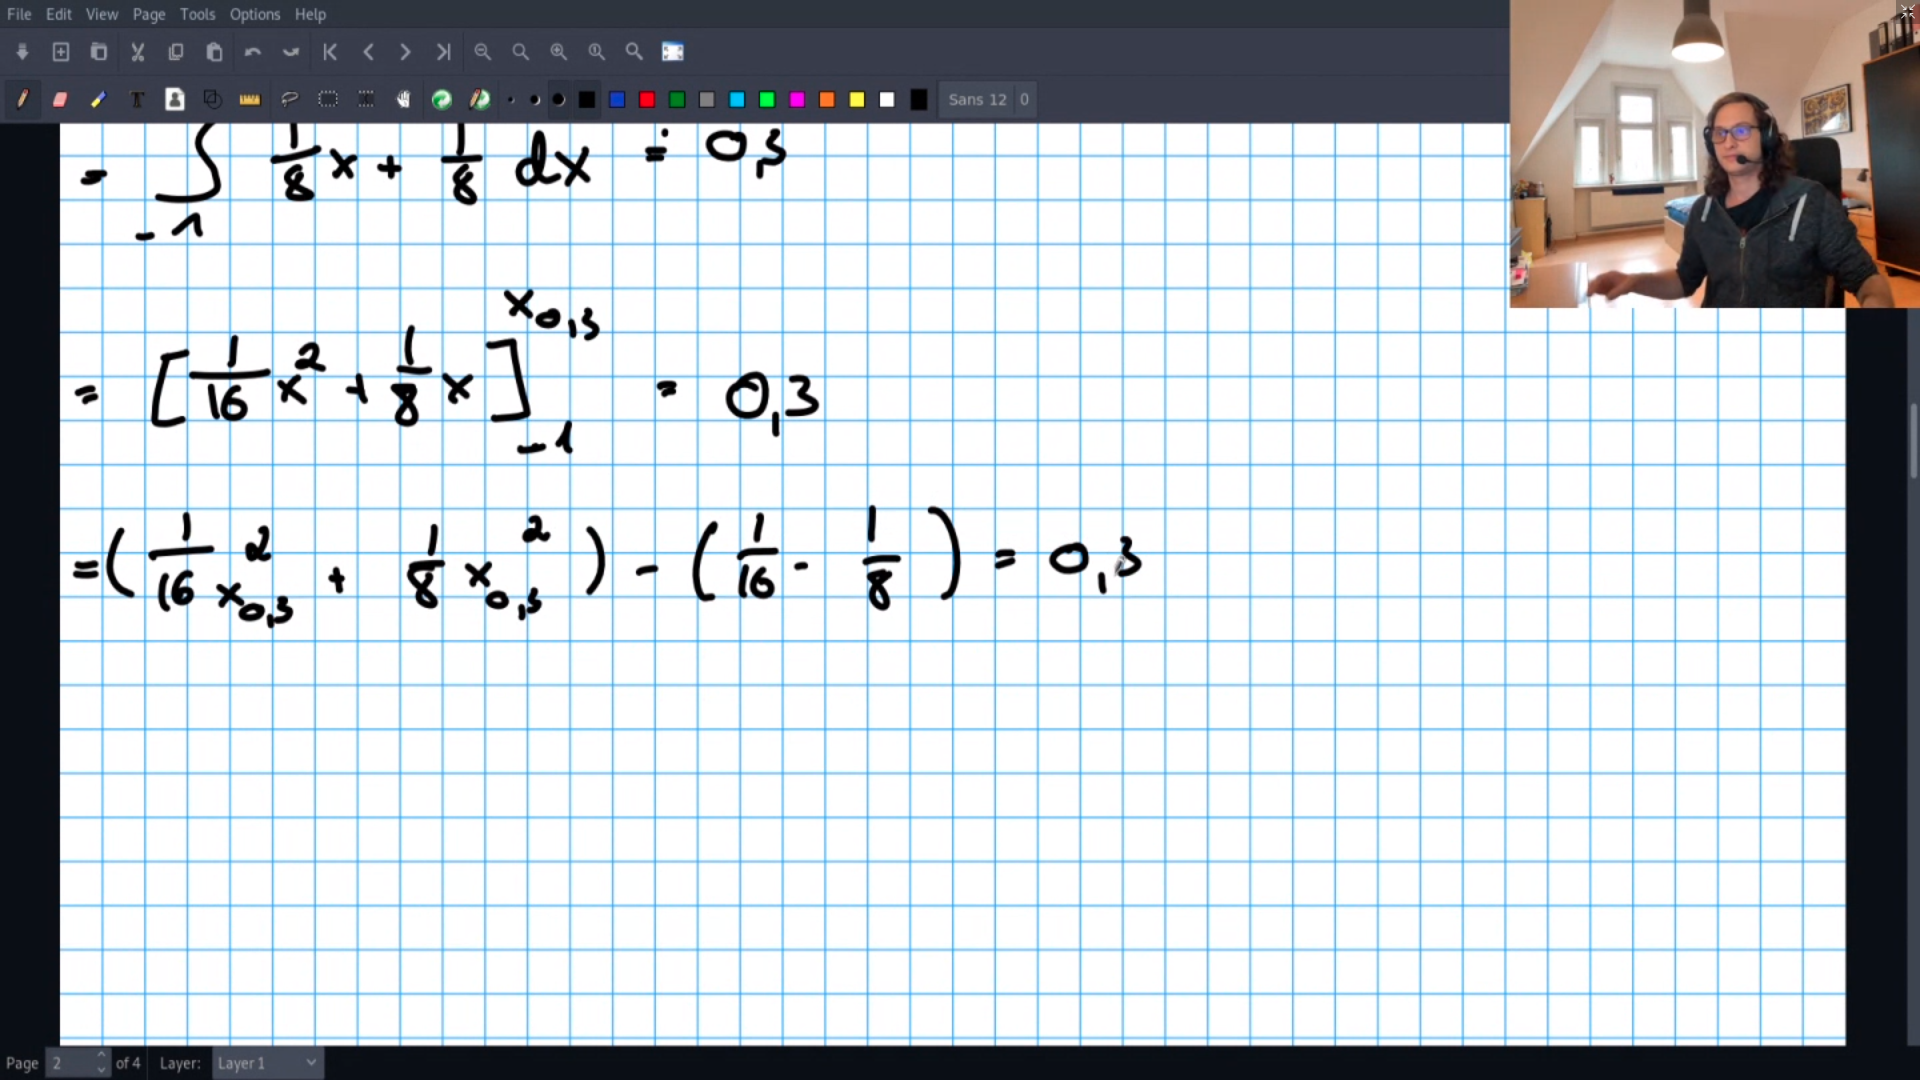 File Edit View Page Tools Options Help
Sans 12 0
= ∫ 1/8 x + 1/8 dx = 0,3
-1
x0,3
= [1/16 x² + 1/8 x] = 0,3
-1
= (1/16 x0,3² + 1/8 x0,3²) - (1/16 - 1/8) = 0,3
Page 2 of 4 Layer: Layer 1